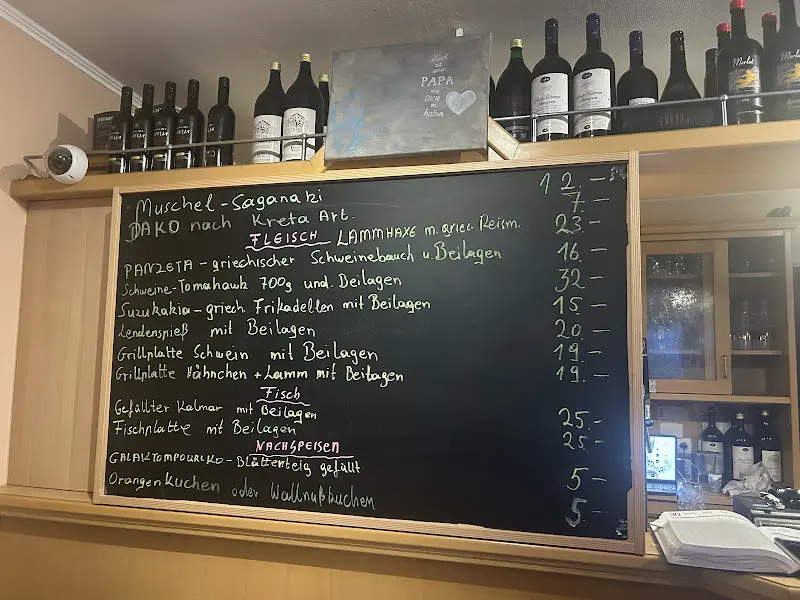 PAPA
DICH
haben
Merlot
Muschel-Saganaki 12.-
DAKO nach Kreta Art. 7.-
FLEISCH LAMMHAXE m. griec. Reisn. 23.-
PANZETA - griechischer Schweinebauch u. Beilagen 16.-
Schweine-Tomahawk 700g und. Beilagen 32-
Suzukakia - griech. Frikadellen mit Beilagen 15.-
Lendenspieß mit Beilagen 20.-
Grillplatte Schwein mit Beilagen 19.-
Grillplatte Hähnchen + Lamm mit Beilagen 19.-
Fisch
Gefüllter Kalmar mit Beilagen 25.-
Fischplatte mit Beilagen 25.-
NACHSPEISEN
GALAKTOMPOURIKO - Blätterteig gefüllt 5-
Orangenkuchen oder Wallnußkuchen 5.-